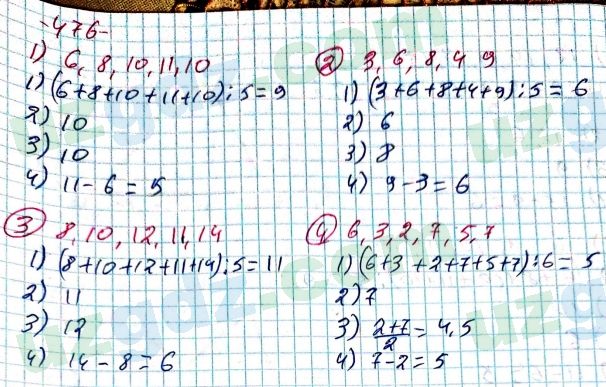 -476-
1) 6, 8, 10, 11, 10
1) (6+8+10+11+10):5=9
2) 10
3) 10
4) 11-6=5
2 3, 6, 8, 4 9
1) (3+6+8+4+9):5=6
2) 6
3) 8
4) 9-3=6
3 8, 10, 12, 11, 14
1) (8+10+12+11+14):5=11
2) 11
3) 12
4) 14-8=6
4 6, 3, 2, 7, 5, 7
1) (6+3+2+7+5+7):6=5
2) 7
3) 2+7/2=4,5
4) 7-2=5